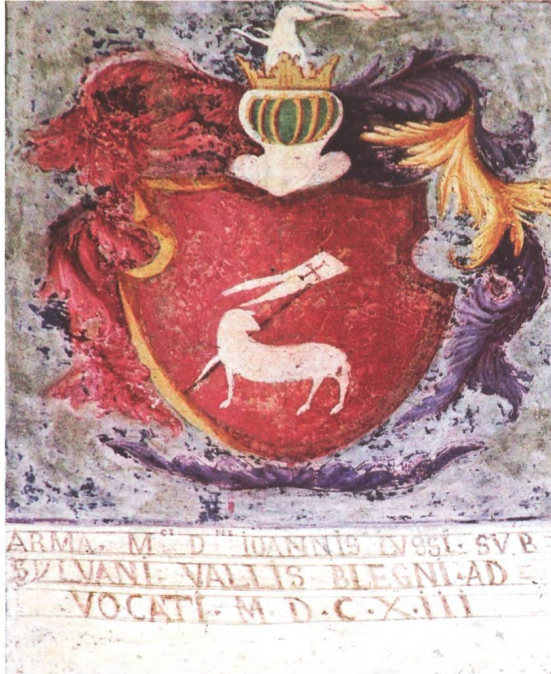 ARMA· M^CI D^NI IOANNIS LVSSI· SVB
SYLVANI· VALLIS BLEGNI·AD=
VOCATI· M·D·C·X·III